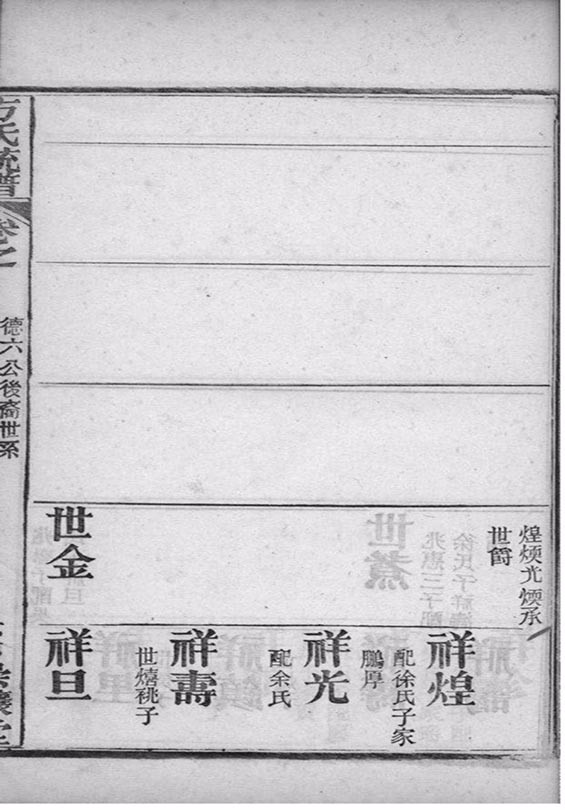 煌煐光煐承
世爵
世金
祥煌
配徐氏子家
鵬厚
祥光
配余氏
祥壽
世熺祧子
祥旦
方氏統譜
卷之
德六公後裔世系